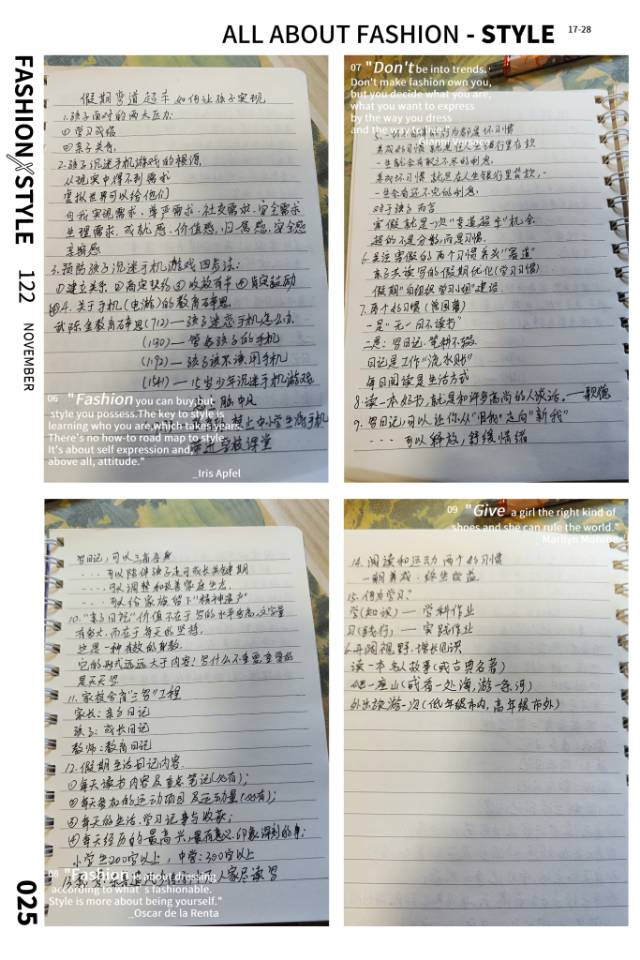 ALL ABOUT FASHION - STYLE 17-28
FASHION X STYLE 122 NOVEMBER
025
假期弯道超车 如何让孩子实现
1.孩子面对的两大压力:
①学习成绩
②亲子关系
2.孩子沉迷手机游戏的根源
从现实中得不到需求
虚拟世界可以给他们
自我实现需求、尊严需求、社交需求、安全需求
生理需求,成就感、价值感、归属感,安全感
3.预防孩子沉迷手机游戏四步法:
①建立关系 ②商定契约 ③收放有节 ④肯定鼓励
4.关于手机(电游)的教育
(712)—孩子迷恋手机怎么办
(1130)—管好孩子的手机
(1192)—孩子该不该用手机
(1541)—让青少年沉迷手机游戏
禁止中小学生将手机
带进学校课堂
06 "Fashion you can buy, but
style you possess.The key to style is
learning who you are,which takes years.
There's no how-to road map to style.
It's about self expression and,
above all, attitude."
_Iris Apfel
07 "Don't be into trends.
Don't make fashion own you,
but you decide what you are,
what you want to express
by the way you dress
and the way to live."
_Gianni Versace
养成好习惯 就是在人生银行里存款
一生就会有取之不尽的利息,
养成坏习惯 就是在人生银行里贷款,
一生会有还不完的利息,
对于孩子而言
寒假就是一次"弯道超车"机会
超的不是分数,而是习惯.
6.关注寒假的两个习惯
亲子共读写的假期优化(学习习惯)
假期"自组织学习小组"建设
7.两个好习惯(曾国藩)
一是"无一日不读书"
二是:写日记,笔耕不辍.
日记是工作"流水账"
每日阅读是生活方式
8.读一本好书,就是和许多高尚的人谈话.——歌德
9.写日记,可以让你从"旧我"走向"新我"
····可以释放,舒缓情绪
写日记,可以三省吾身
····可以陪伴孩子走过成长关键期
····可以调整和改善家庭生态.
····可以给家族留下"精神遗产"
10."亲子日记"价值不在于写的水平高低,文字量
有多大,而在于每天的坚持.
这是一种有效的身教.
它的形式远远大于内容!写什么不重要,重要的
是天天写
11.家校合育"三写"工程
家长:亲子日记
孩子:成长日记
教师:教育日记
12.假期生活日记内容.
①每天读书内容及重点笔记(必有);
②每天参加的运动项目及运动量(必有);
③每天的生活、学习记事与收获;
④每天经历的最高兴、最有意义、印象深刻的事;
小学生200字以上,中学:300字以上
08 "Fashion is about dressing
according to what's fashionable.
Style is more about being yourself."
_Oscar de la Renta
09 "Give a girl the right kind of
shoes and she can rule the world."
_Marilyn Monroe
14.阅读和运动 两个好习惯
一朝养成.终生受益
15.何为学习?
学(知识)— 学科作业
习(践行)— 实践作业
开阔视野.增长见识
读一本名人故事(或古典名著)
一座山(或看一处海,游一条河)
外出旅游一次(低年级市内,高年级市外)